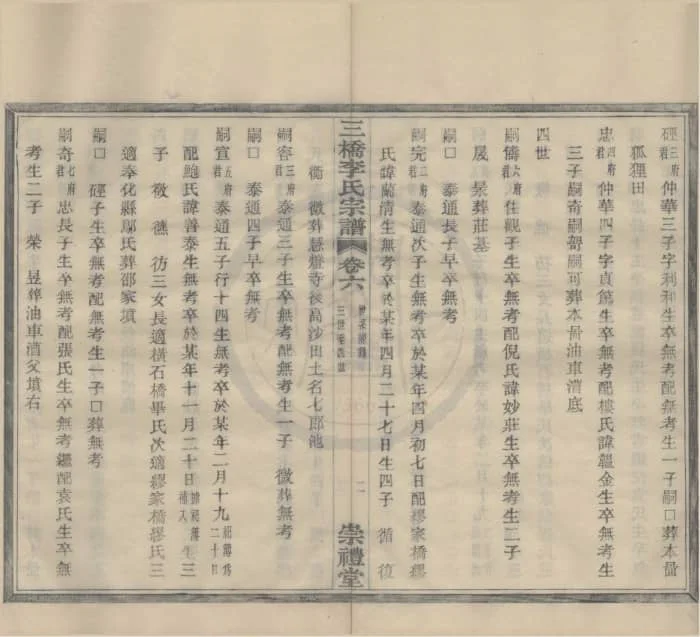 硜三府君 仲華三子字利和生卒無考配無考生一子嗣口葬本嵒
狐狸田
忠四府君 仲華四子字貞篤生卒無考配樓氏諱韞金生卒無考生
三子嗣奇嗣嗣可葬本嵒油車漕底
四世
嗣儔六府君 仕觀子生卒無考配倪氏諱妙莊生卒無考生二子
晟 景葬莊墓
嗣口 泰通長子早卒無考
嗣完二府君 泰通次子生無考卒於某年四月初七日配繆家橋繆
氏諱蘭清生無考卒於某年四月二十七日生四子 循 復
三橋李氏宗譜 卷六 三世至四世 二 崇禮堂
衡 微葬慧燈寺後高沙田土名七郎池
嗣容三府君 泰通三子生卒無考配無考生一子 徵葬無考
嗣口 泰通四子早卒無考
嗣宣五府君 泰通五子行十四生無考卒於某年二月十九 二十日
配鮑氏諱善泰生無考卒於某年十一月二十日 生三
子 敬 彷三女長適橫石橋畢氏次適繆家橋繆氏三
適奉化縣鄔氏葬邵家墳
嗣口 硜子生卒無考配無考生一子口葬無考
嗣奇七府君 忠長子生卒無考配張氏生卒無考繼配袁氏生卒無
考生二子 榮 昱葬油車漕父墳右